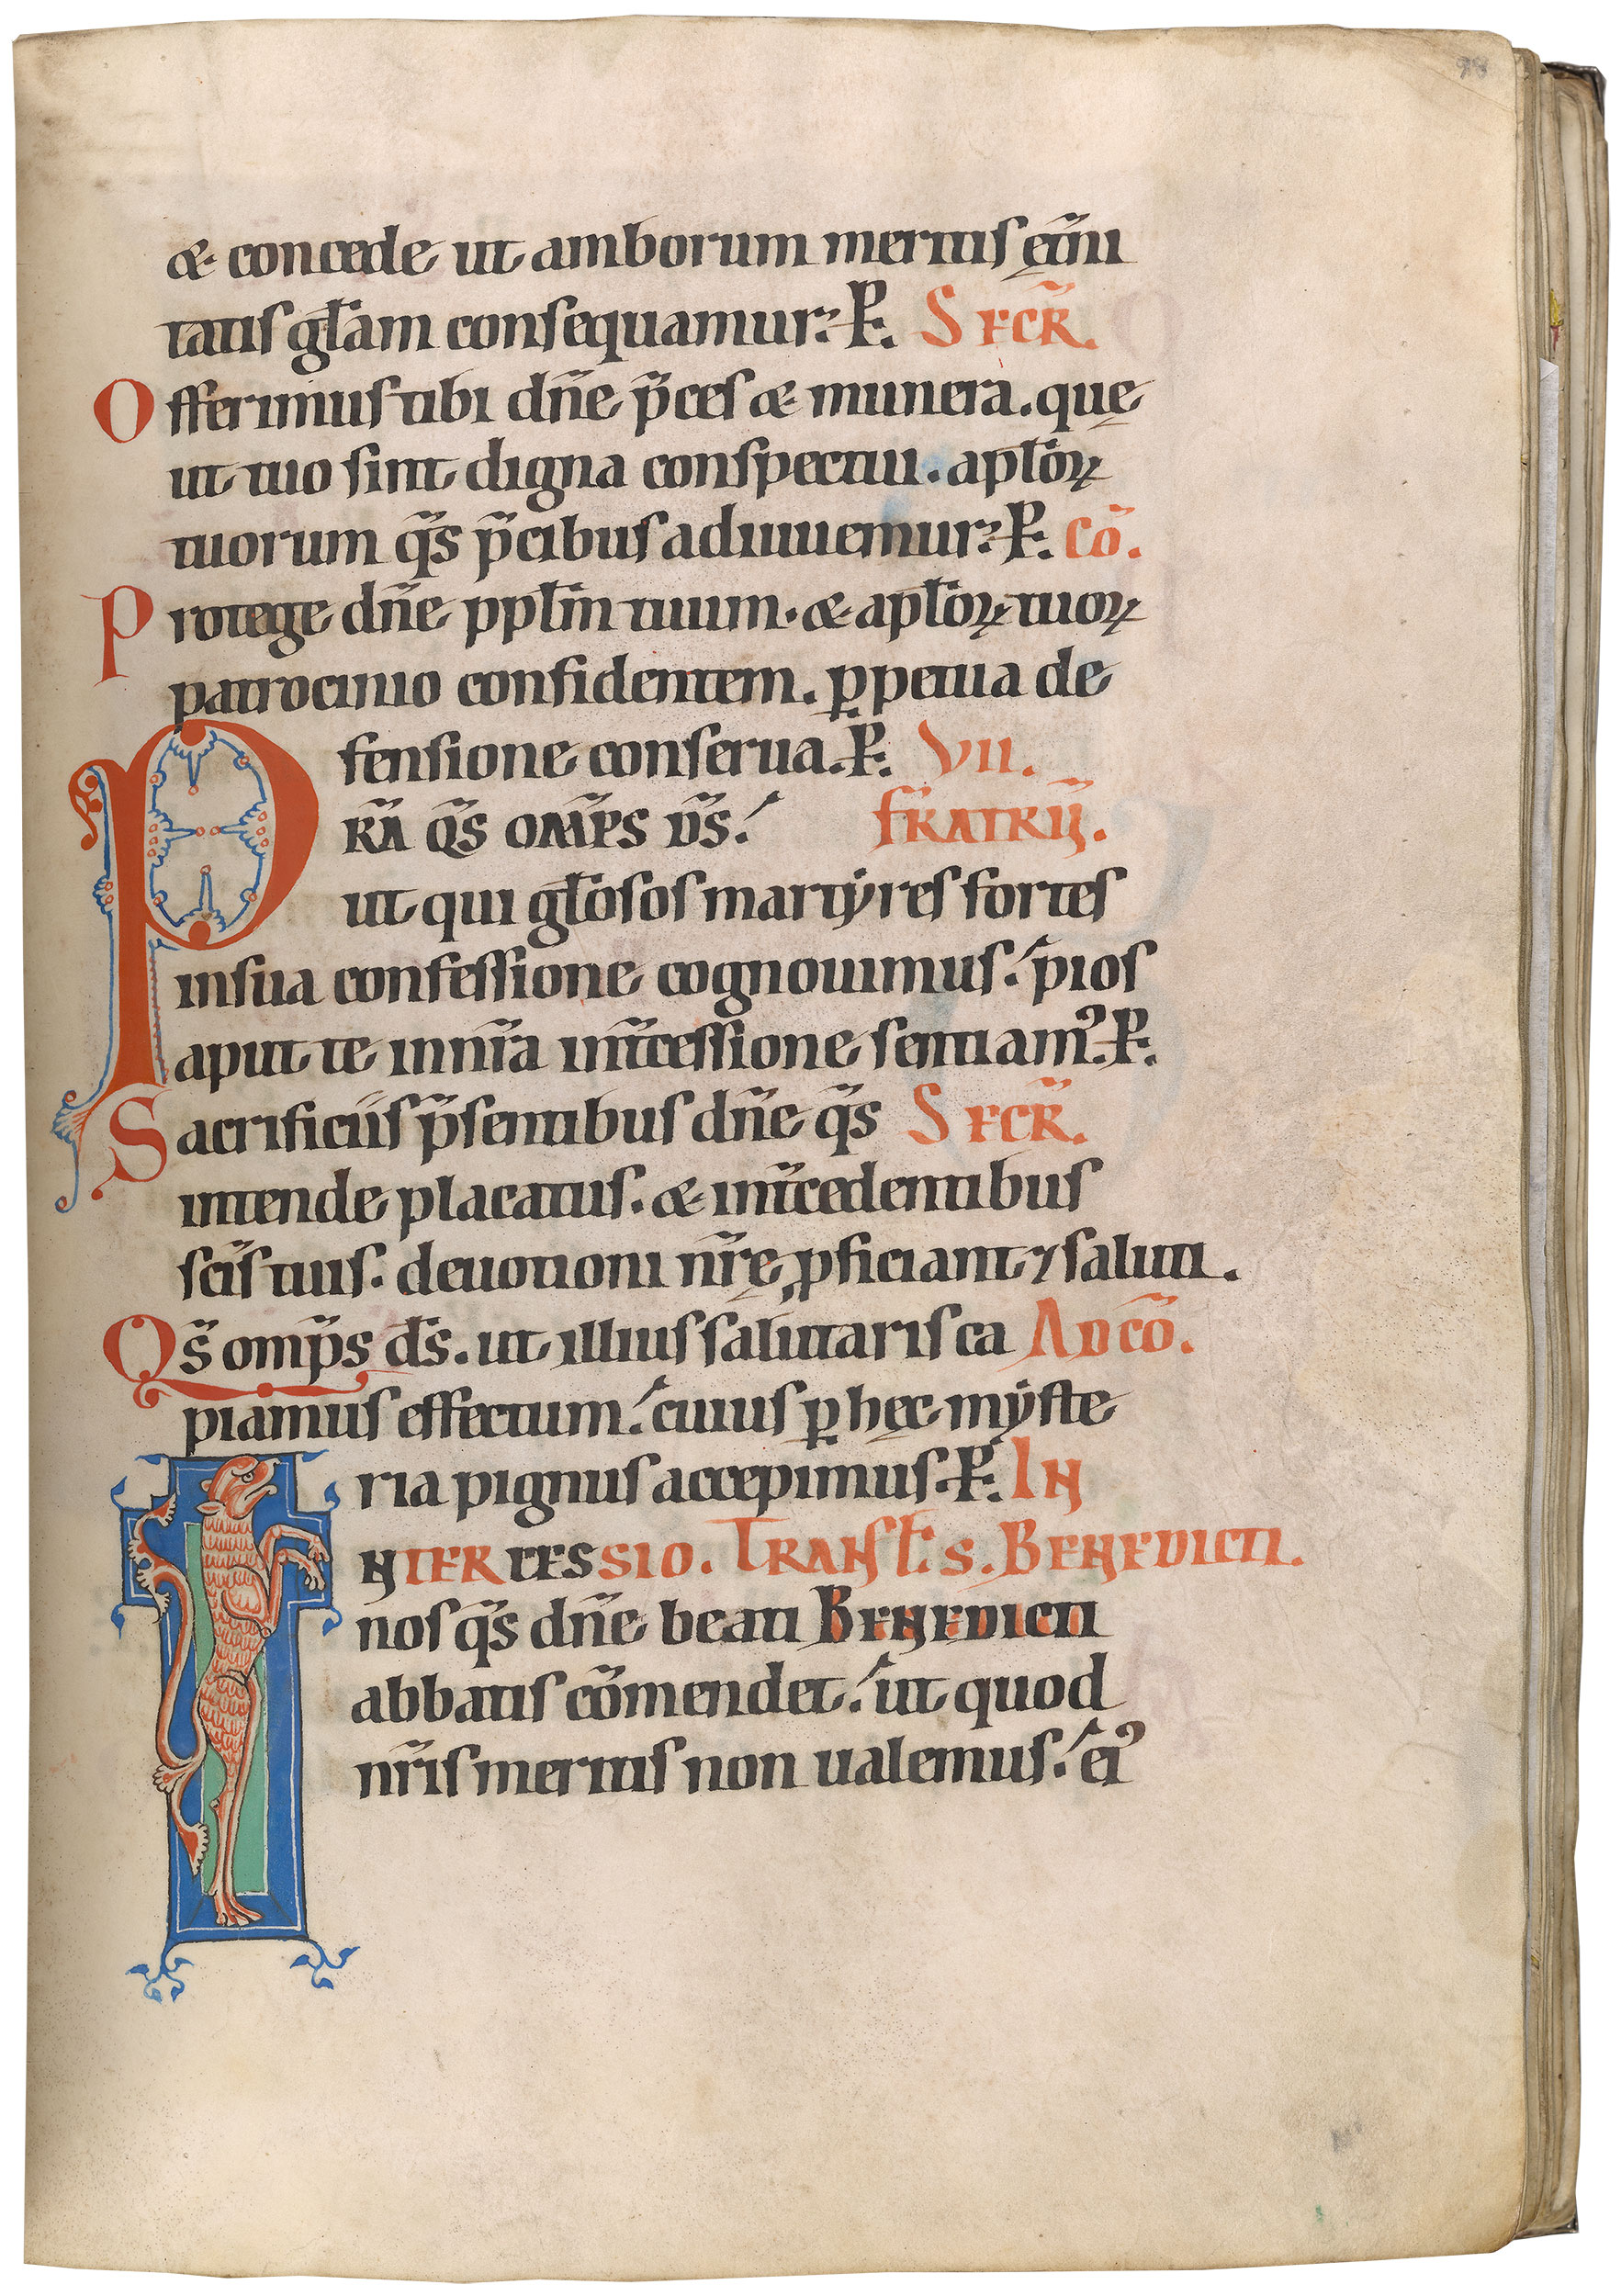 98
& concede ut amborum meritis ęt̄ni
tatis gl̄am consequamur. P. SECR̄.
Offerimus tibi dn̄e p̄ces & munera. quę
ut tuo sint digna conspectui. apl̄oꝝ
tuorum q̄s p̄cibus adiuuemur. P. CŌ.
Protege dn̄e ppl̄m tuum. & apl̄oꝝ tuoꝝ
patrocinio confidentem. ꝑpetua de
fensione conserua. P. VII.
PR̄A Q̄S OMP̄S D̄S. FR̄ATRŪ.
ut qui gl̄osos martẏres fortes
insua confessione cognouimus. pios
aput te innr̄a int̄cessione sentiamꝰ. P.
Sacrificiis p̄sentibus dn̄e q̄s SECR̄.
intende placatus. & int̄cedentibus
sc̄is tuis. deuotioni nr̄ę ꝓficiant ⁊ saluti.
Qs̄ omp̄s d̄s. ut illius salutaris ca AD CŌ.
piamus effectum. cuius ꝑ hęc mẏste
ria pignus accepimus. P. IN
INTERCESSIO. TRANSL̄. S. BENEDICTI.
nos q̄s dn̄e beati BENEDICTI
abbatis cōmendet. ut quod
nr̄is meritis non ualemus. eiꝰ